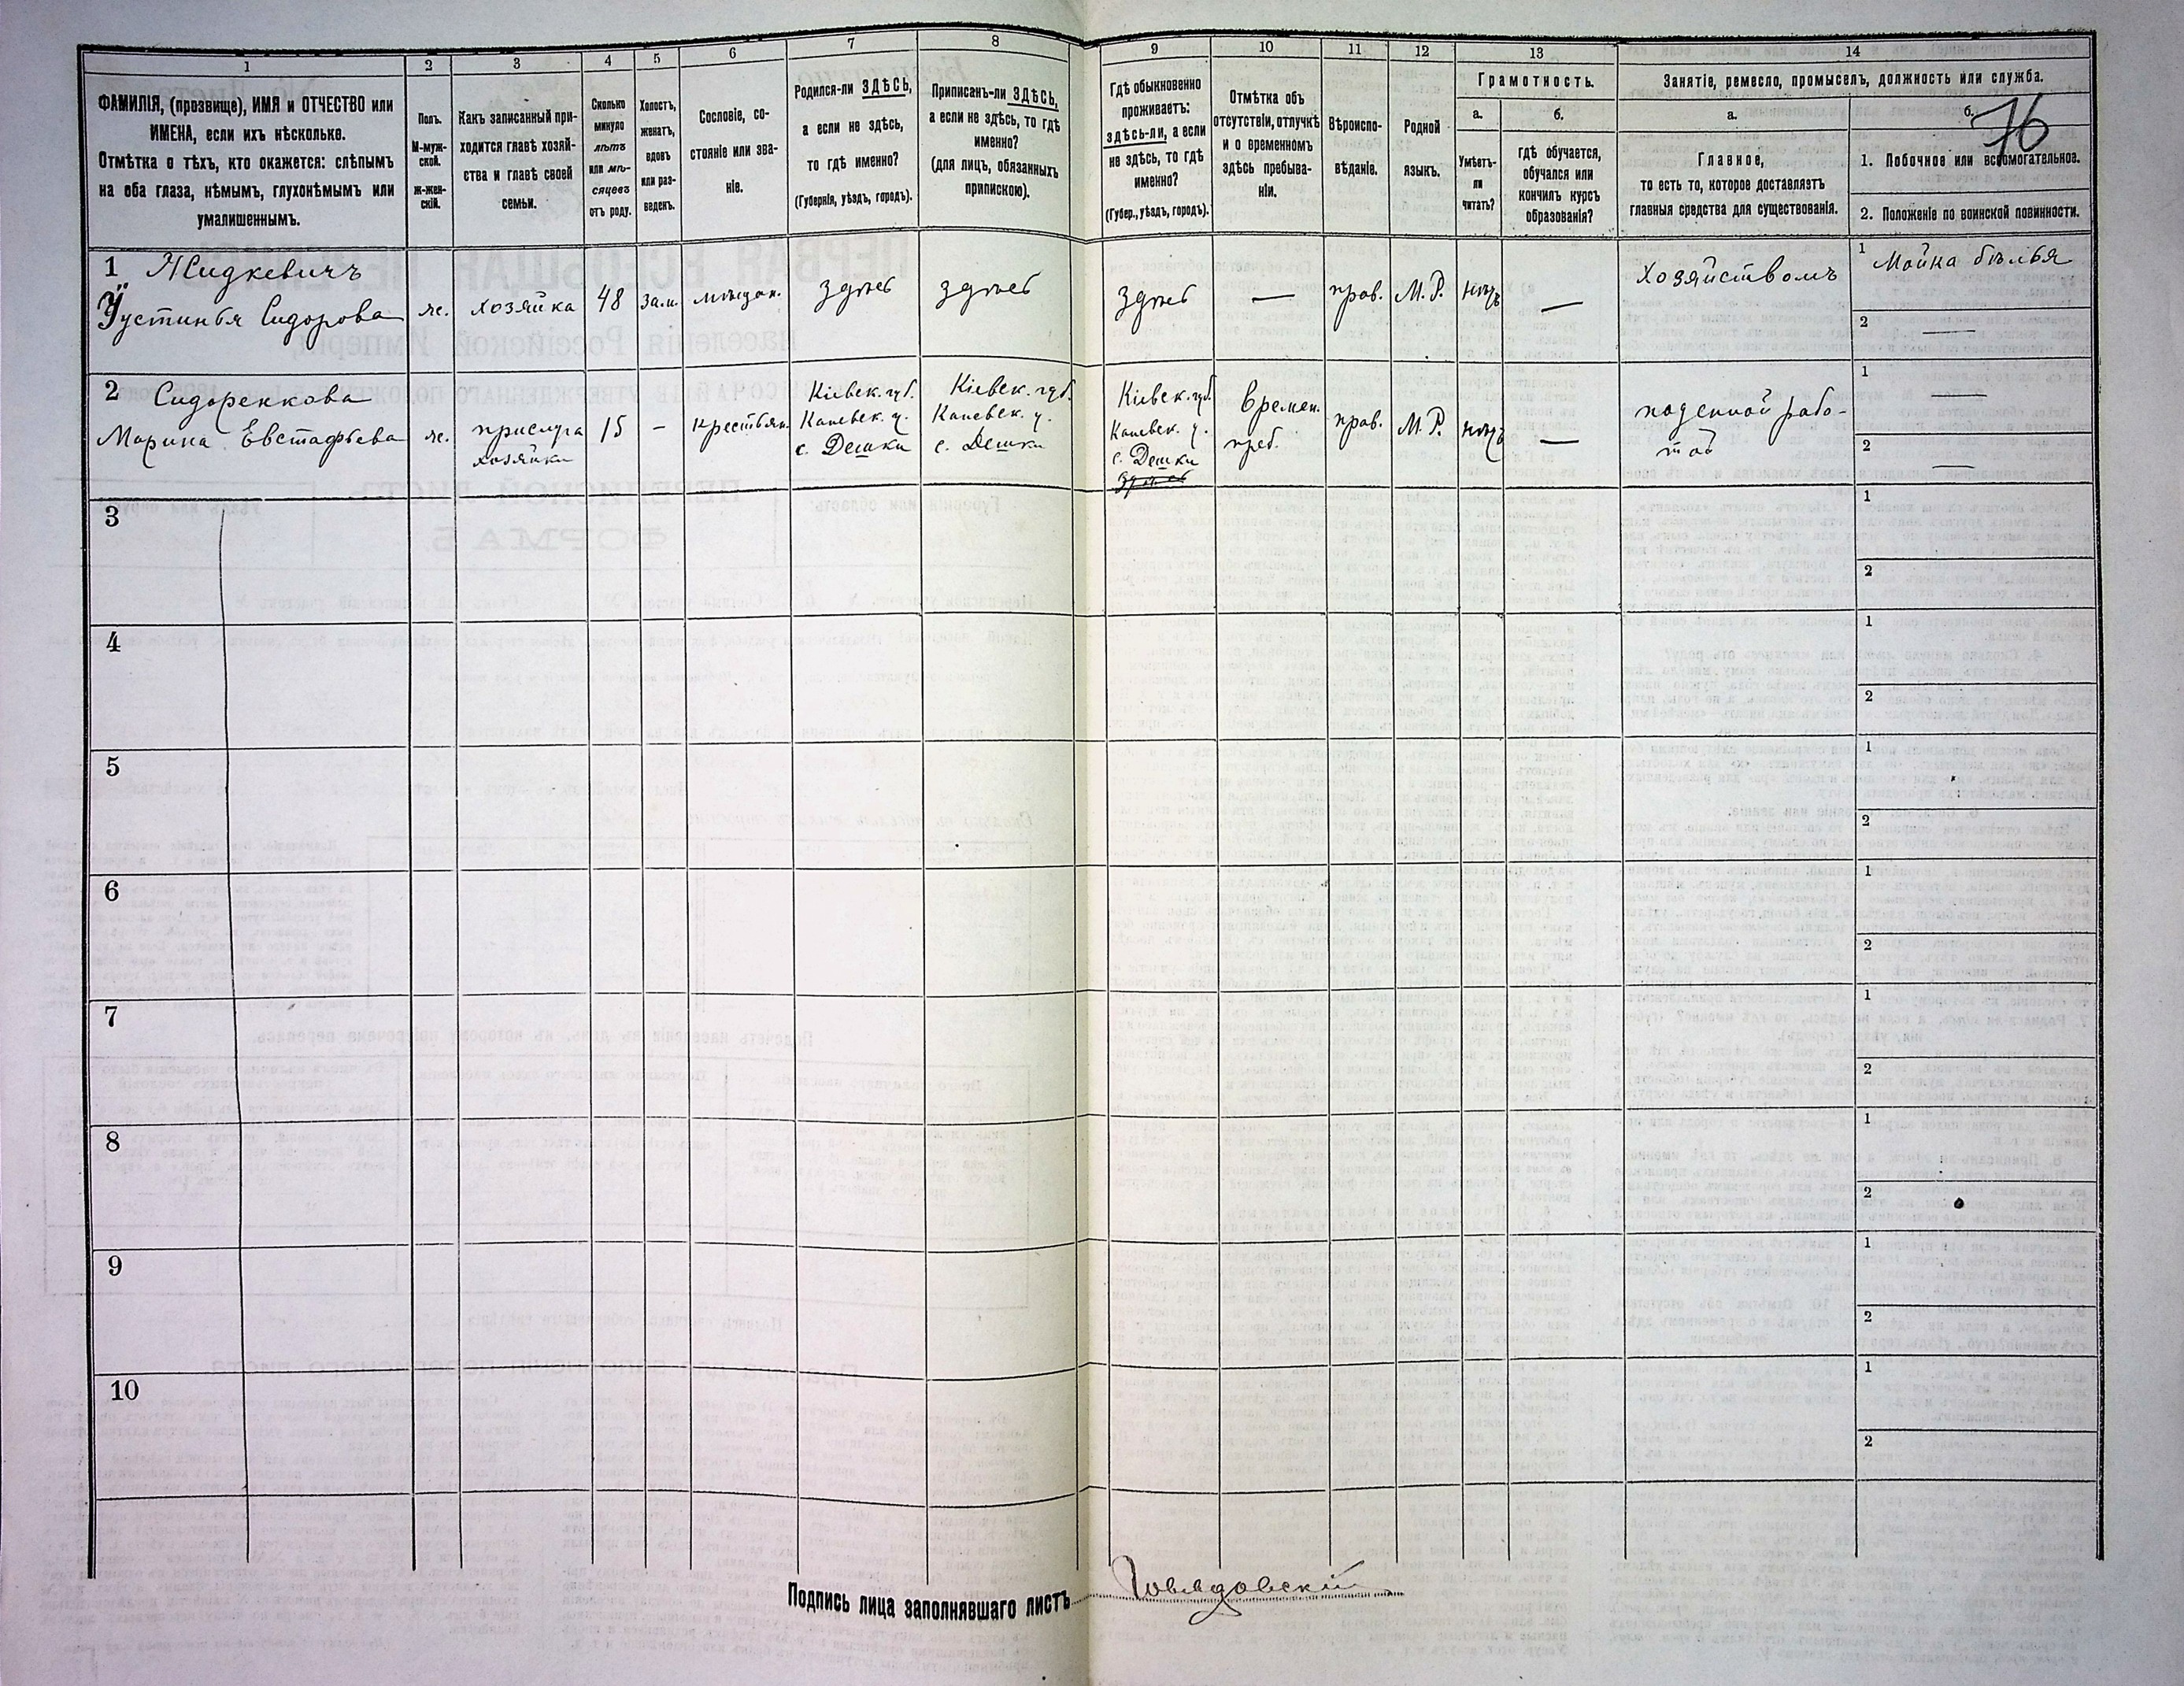 1
2
3
4
5
6
7
8
9
10
11
12
13
14
ФАМИЛІЯ, (прозвище), ИМЯ и ОТЧЕСТВО или
ИМЕНА, если ихъ нѣсколько.
Отмѣтка о тѣхъ, кто окажется: слѣпымъ
на оба глаза, нѣмымъ, глухонѣмымъ или
умалишеннымъ.
Полъ.
М-муж-
ской.
ж-жен-
скій.
Какъ записанный при-
ходится главѣ хозяй-
ства и главѣ своей
семьи.
Сколько
минуло
лѣтъ
или мѣ-
сяцевъ
отъ роду.
Холостъ,
женатъ,
вдовъ
или раз-
веденъ.
Сословіе, со-
стояніе или зва-
ніе.
Родился-ли ЗДѢСЬ,
а если не здѣсь,
то гдѣ именно?
(Губернія, уѣздъ, городъ).
Приписанъ-ли ЗДѢСЬ,
а если не здѣсь, то гдѣ
именно?
(для лицъ, обязанныхъ
припискою).
Гдѣ обыкновенно
проживаетъ:
здѣсь-ли, а если
не здѣсь, то гдѣ
именно?
(Губер., уѣздъ, городъ).
Отмѣтка объ
отсутствіи, отлучкѣ
и о временномъ
здѣсь пребыва-
ніи.
Вѣроиспо-
вѣданіе.
Родной
языкъ.
Грамотность.
а.
Умѣетъ-
ли
читать?
б.
гдѣ обучается,
обучался или
кончилъ курсъ
образованія?
Занятіе, ремесло, промыселъ, должность или служба.
а.
Главное,
то есть то, которое доставляетъ
главныя средства для существованія.
б.
76
1. Побочное или вспомогательное.
2. Положеніе по воинской повинности.
1 Жидкевичъ
Устинья Сидорова
ж.
хозяйка
48
зам.
мѣщан.
здѣсь
здѣсь
здѣсь
—
прав.
М. Р.
нѣтъ
—
хозяйствомъ
1 Мойка бѣлья
2 —
2 Сидоренкова
Марина Евстафьева
ж.
прислуга
хозяйки
15
-
крестьян.
Кіевск. губ.
Каневск. у.
с. Дешки
Кіевск. губ.
Каневск. у.
с. Дешки
Кіевск. губ.
Каневск. у.
с. Дешки
здѣсь
времен.
преб.
прав.
М. Р.
нѣтъ
—
поденной рабо-
той
1 —
2 —
3
1
2
4
1
2
5
1
2
6
1
2
7
1
2
8
1
2
9
1
2
10
1
2
Подпись лица заполнявшаго листъ